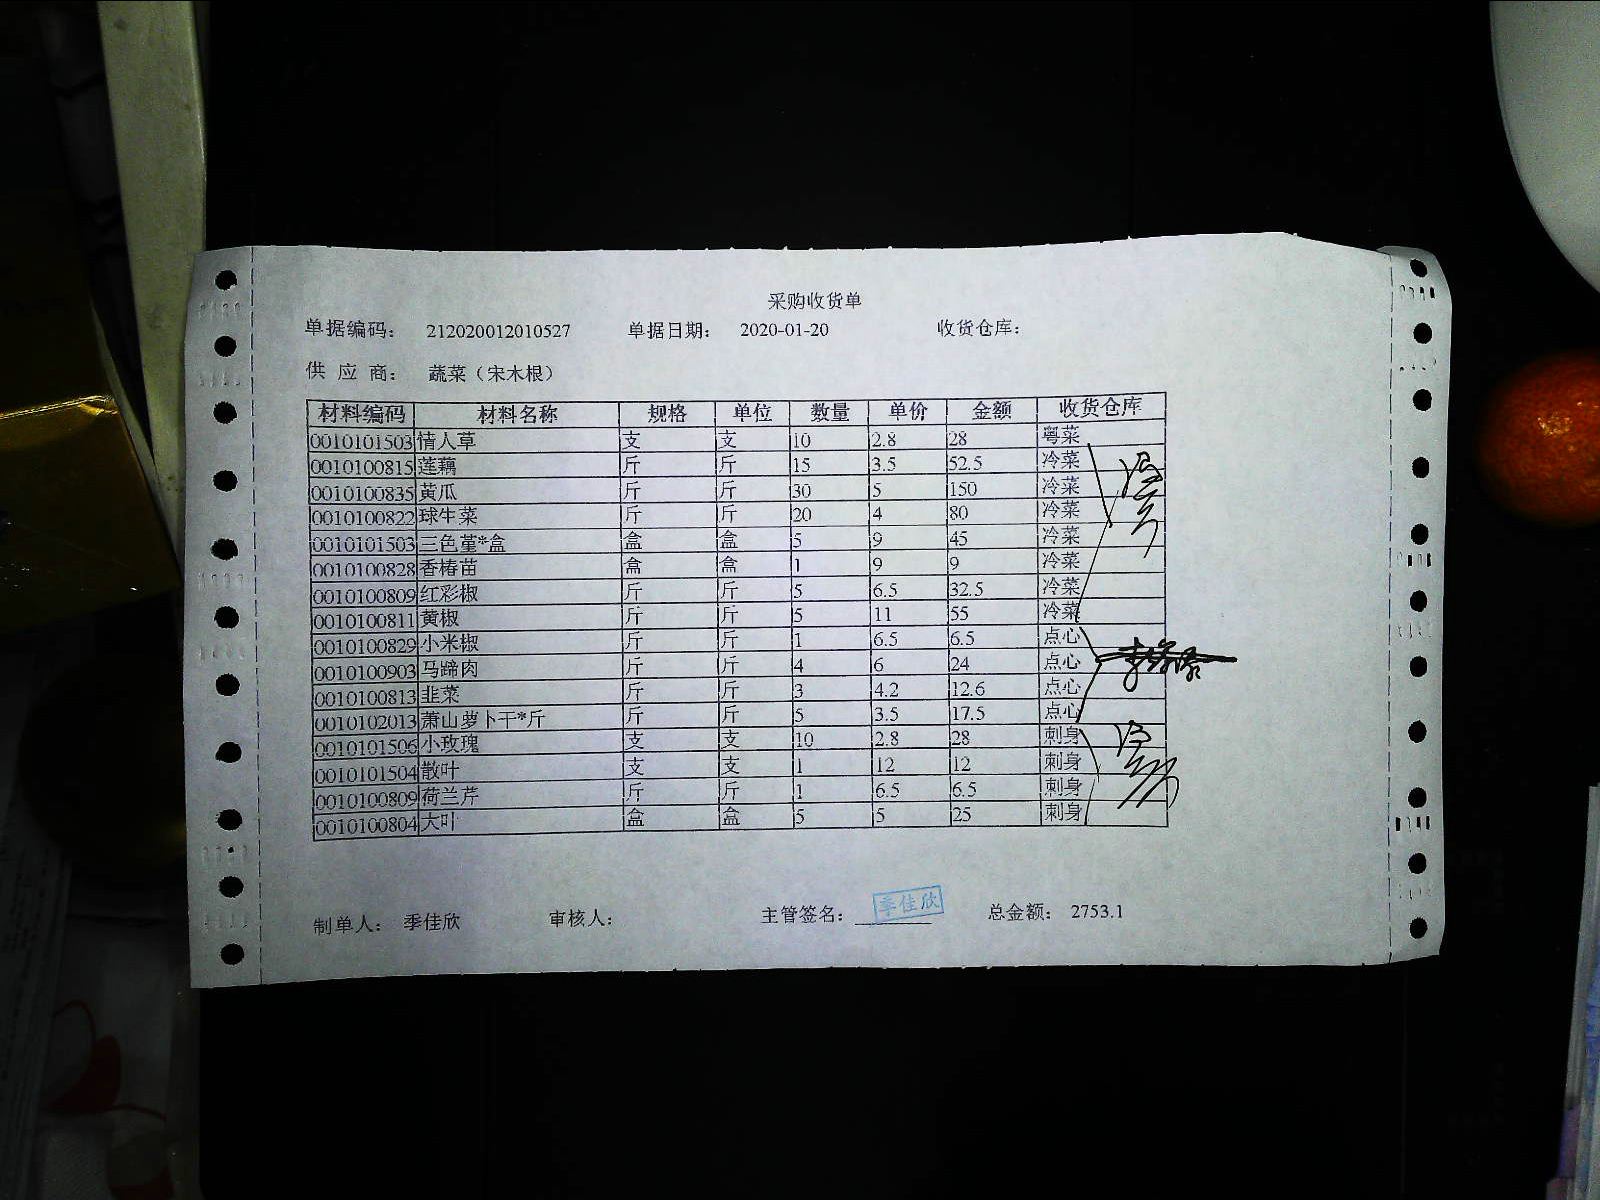 采购收货单
单据编码： 212020012010527 单据日期： 2020-01-20 收货仓库：
供 应 商： 蔬菜（宋木根）
材料编码 材料名称 规格 单位 数量 单价 金额 收货仓库
0010101503 情人草 支 支 10 2.8 28 粤菜
0010100815 莲藕 斤 斤 15 3.5 52.5 冷菜
0010100835 黄瓜 斤 斤 30 5 150 冷菜
0010100822 球生菜 斤 斤 20 4 80 冷菜
0010101503 三色堇*盒 盒 盒 5 9 45 冷菜
0010100828 香椿苗 盒 盒 1 9 9 冷菜
0010100809 红彩椒 斤 斤 5 6.5 32.5 冷菜
0010100811 黄椒 斤 斤 5 11 55 冷菜
0010100829 小米椒 斤 斤 1 6.5 6.5 点心
0010100903 马蹄肉 斤 斤 4 6 24 点心
0010100813 韭菜 斤 斤 3 4.2 12.6 点心
0010102013 萧山萝卜干*斤 斤 斤 5 3.5 17.5 点心
0010101506 小玫瑰 支 支 10 2.8 28 刺身
0010101504 散叶 支 支 1 12 12 刺身
0010100809 荷兰芹 斤 斤 1 6.5 6.5 刺身
0010100804 大叶 盒 盒 5 5 25 刺身
制单人： 季佳欣 审核人： 主管签名： 季佳欣 总金额： 2753.1